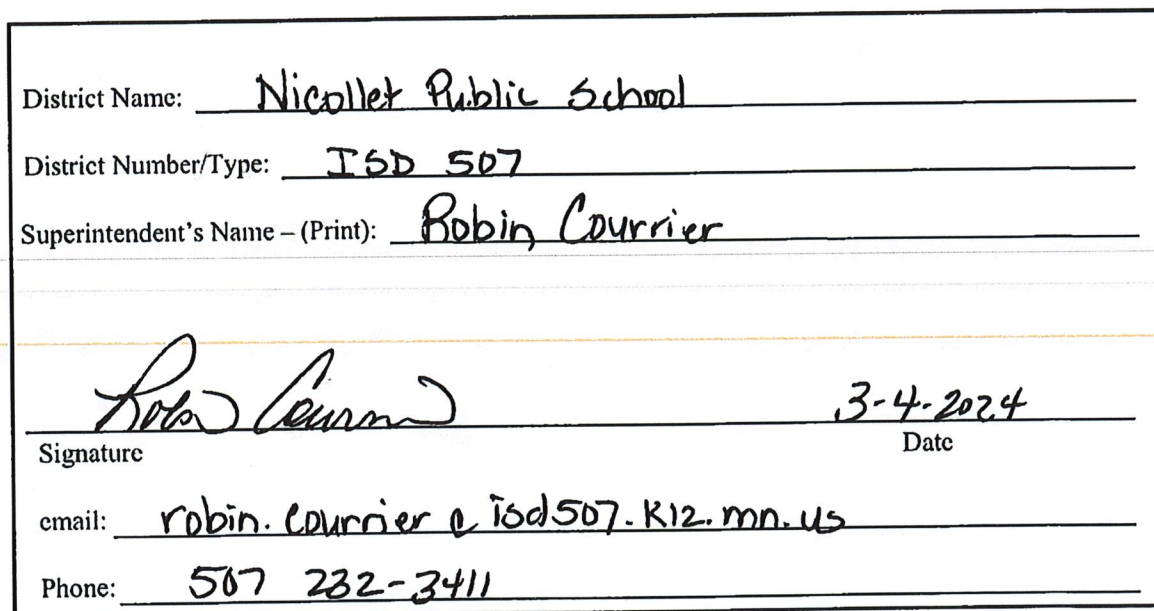 District Name: Nicollet Public School
District Number/Type: ISD 507
Superintendent's Name – (Print): Robin Courrier
Robin Courrier 3-4-2024
Signature Date
email: robin.courrier@isd507.k12.mn.us
Phone: 507 232-3411